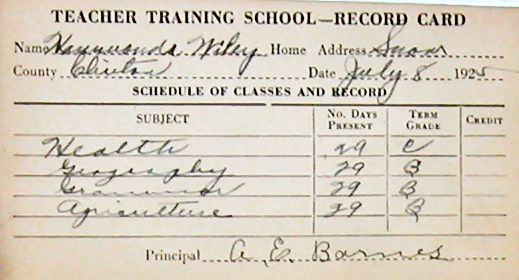 TEACHER TRAINING SCHOOL—RECORD CARD
Name Wiley Home Address
County Clinton Date July 8 1925
SCHEDULE OF CLASSES AND RECORD
SUBJECT No. Days Present Term Grade Credit
Health 29 C
Geography 29 B
Grammar 29 B
Agriculture 29 B
Principal A. E. Barnes